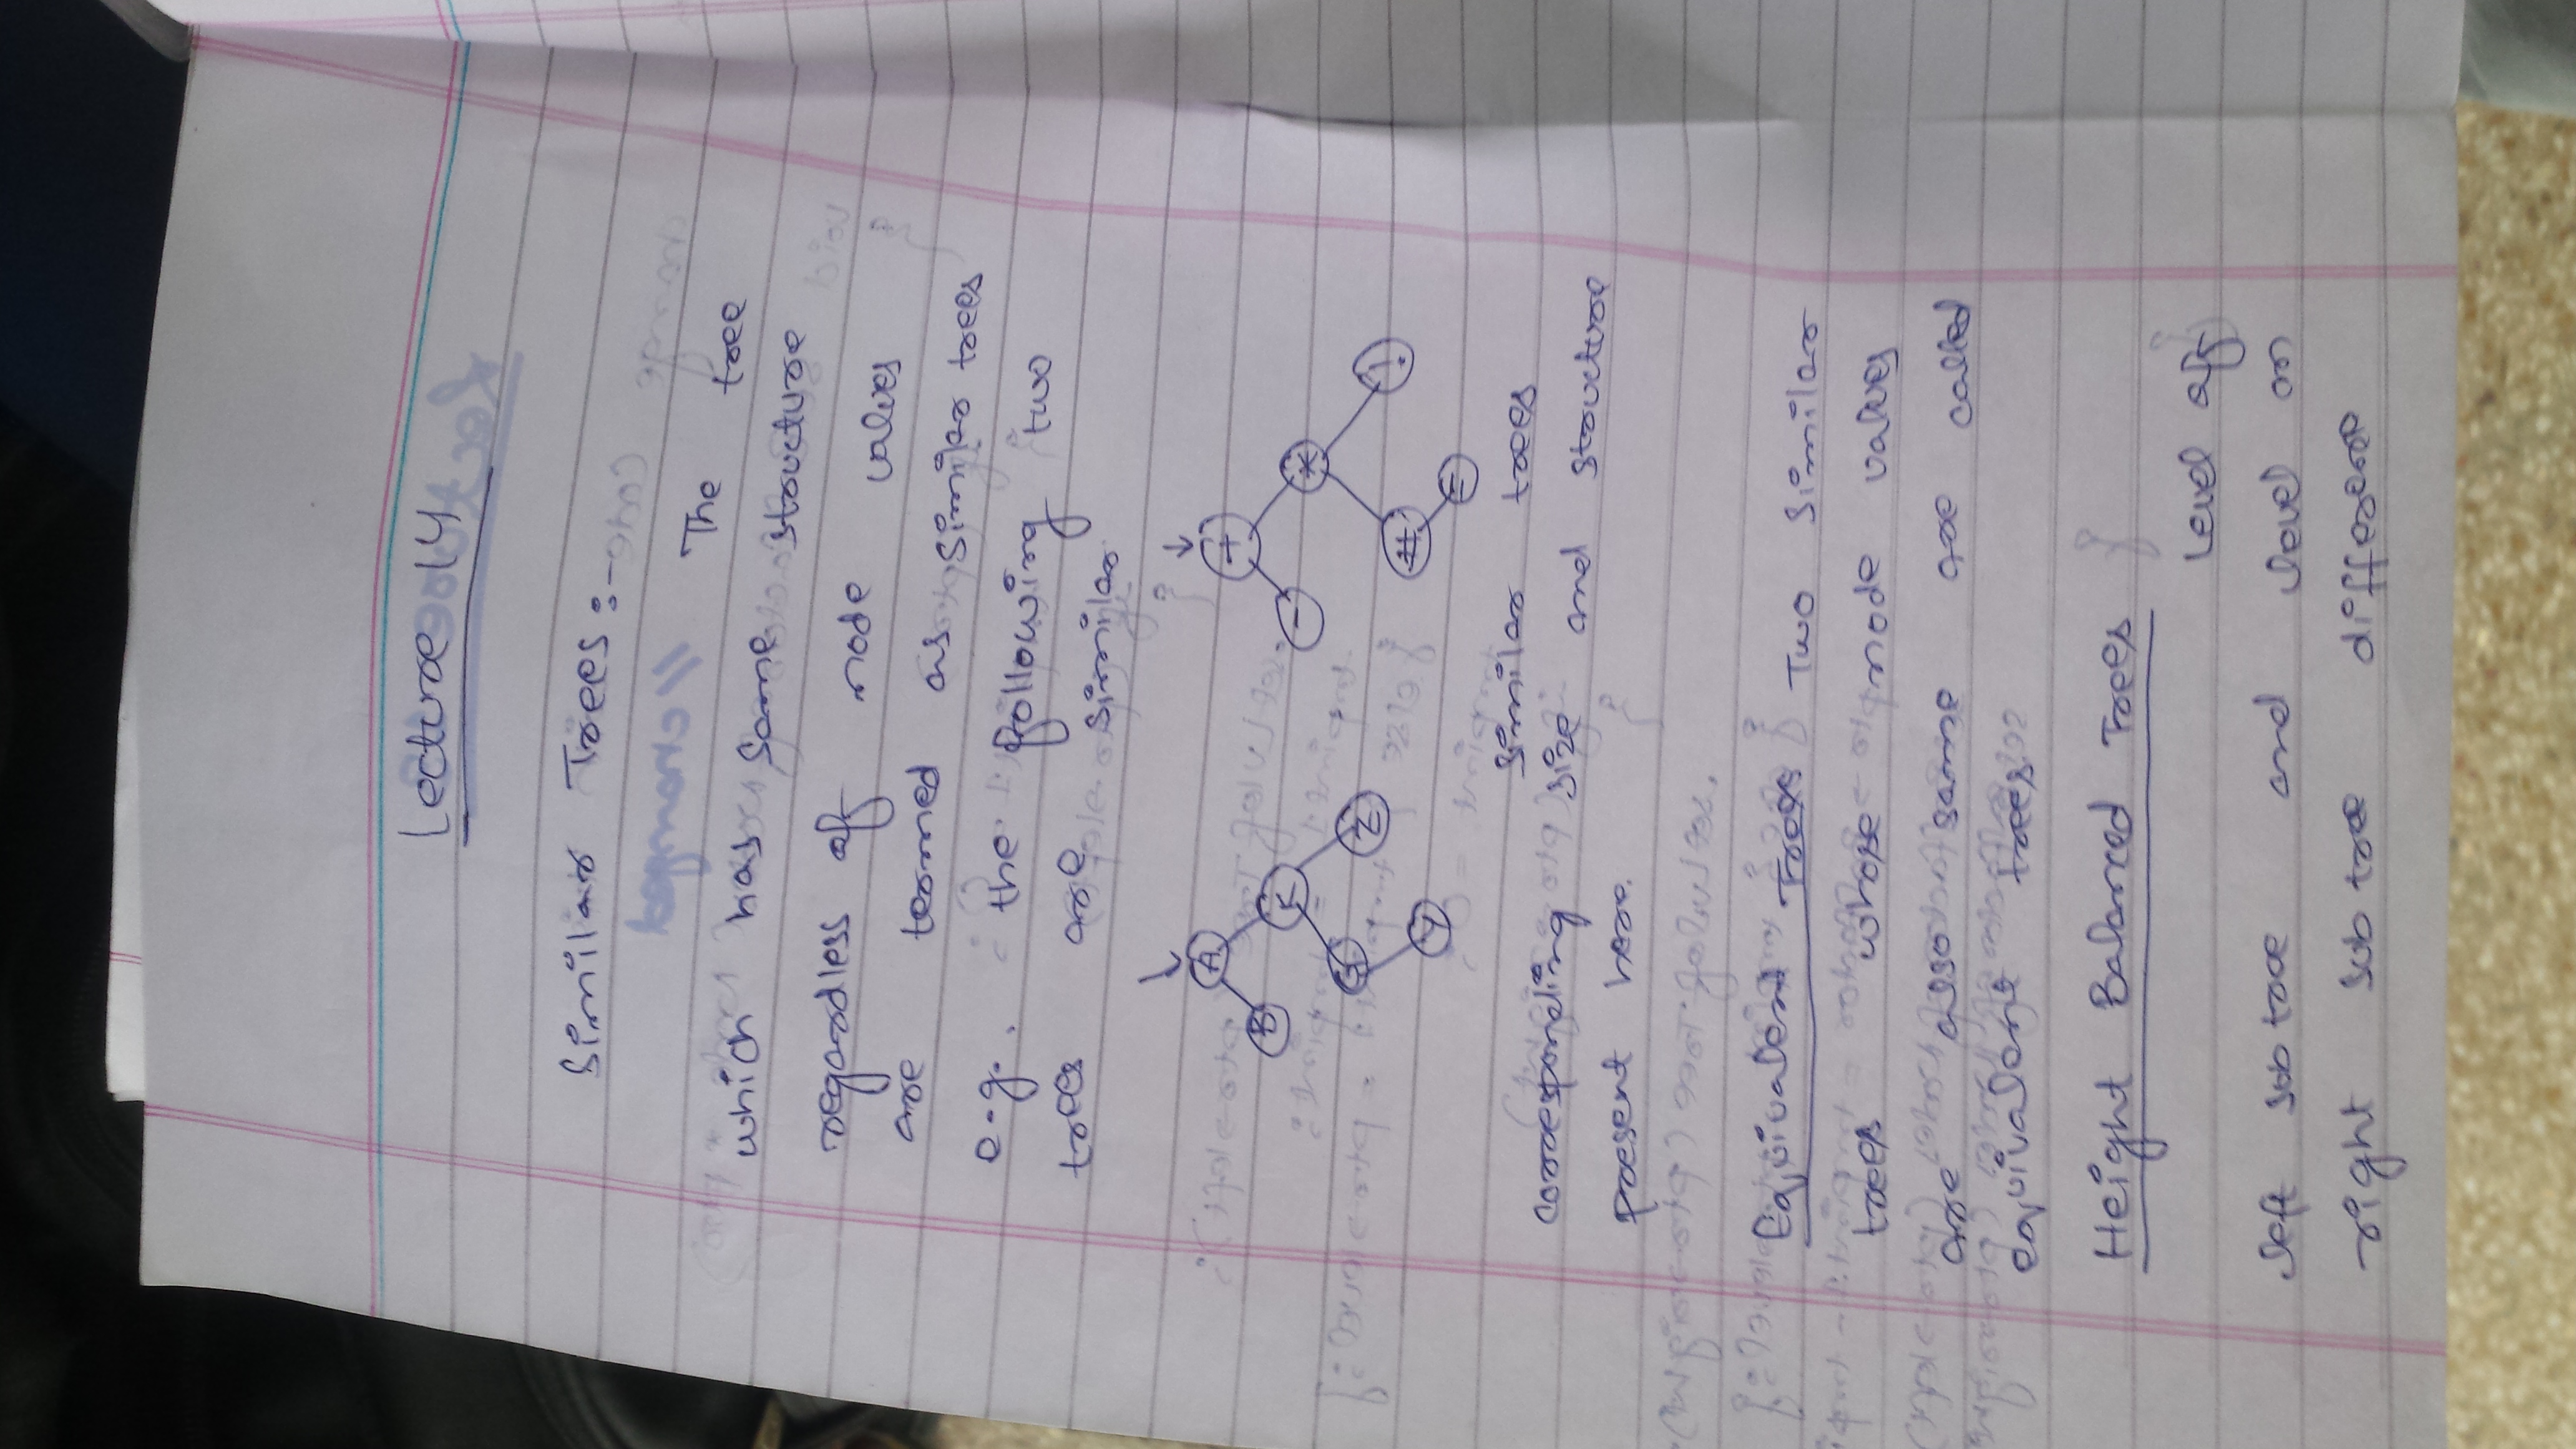 Lecture 14
Similar Trees :-
The tree
which has same structure
regardless of node values
are termed as similar trees
e.g. the following two
trees are similar
A +
B K - *
S Z # !
Y =
similar trees
corresponding size and structure
present here.
Equivalent Trees Two similar
trees whose node values
are also same are called
equivalent trees
Height Balanced Trees
Level of
left sub tree and level on
right sub tree difference